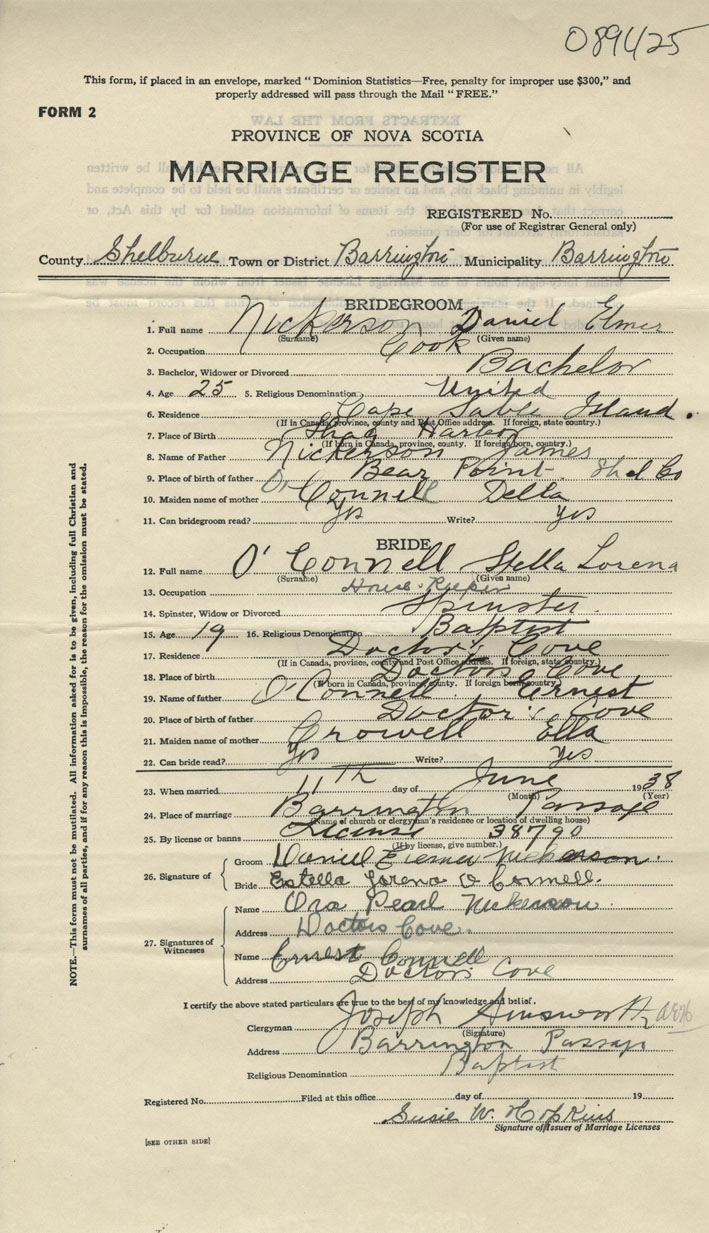 089425
This form, if placed in an envelope, marked "Dominion Statistics—Free, penalty for improper use $300," and
properly addressed will pass through the Mail "FREE."
FORM 2
PROVINCE OF NOVA SCOTIA
MARRIAGE REGISTER
REGISTERED No.
(For use of Registrar General only)
County Shelburne Town or District Barrington Municipality Barrington
BRIDEGROOM
1. Full name Nickerson Daniel Elmer
(Surname) (Given name)
2. Occupation Cook
3. Bachelor, Widower or Divorced Bachelor
4. Age 25 5. Religious Denomination United
6. Residence Cape Sable Island.
(If in Canada, province, county and Post Office address. If foreign, state country.)
7. Place of Birth Shag Harbor
(If born in Canada, province, county. If foreign born, country.)
8. Name of Father Nickerson James
9. Place of birth of father Bear Point Shel Co
10. Maiden name of mother O'Connell Della
11. Can bridegroom read? Yes Write? Yes
BRIDE
12. Full name O'Connell Stella Lorena
(Surname) (Given name)
13. Occupation House-Keeper
14. Spinster, Widow or Divorced Spinster.
15. Age 19 16. Religious Denomination Baptist
17. Residence Doctor's Cove
(If in Canada, province, county and Post Office address. If foreign, state country.)
18. Place of birth Doctors Cove
(If born in Canada, province, county. If foreign born, country.)
19. Name of father O'Connell Ernest
20. Place of birth of father Doctor's Cove
21. Maiden name of mother Crowell Ella
22. Can bride read? Yes Write? Yes
23. When married 11th day of June 1938
(Month) (Year)
24. Place of marriage Barrington Passage
(Name of church or clergyman's residence or location of dwelling house)
25. By license or banns License 38790
(If by license, give number.)
26. Signature of Groom Daniel Elmer Nickerson.
Bride Estella Lorena O Connell.
27. Signatures of Witnesses Name Ora Pearl Nickerson
Address Doctors Cove.
Name Ernest Connell
Address Doctors Cove
I certify the above stated particulars are true to the best of my knowledge and belief.
Clergyman Joseph Ainsworth
(Signature)
Address Barrington Passage
Religious Denomination Baptist
Registered No. Filed at this office day of 19
Susie W. Hopkins
Signature of Issuer of Marriage Licenses
[SEE OTHER SIDE]
NOTE.—This form must not be mutilated. All information asked for is to be given, including full Christian and
surnames of all parties, and if for any reason this is impossible, the reason for the omission must be stated.